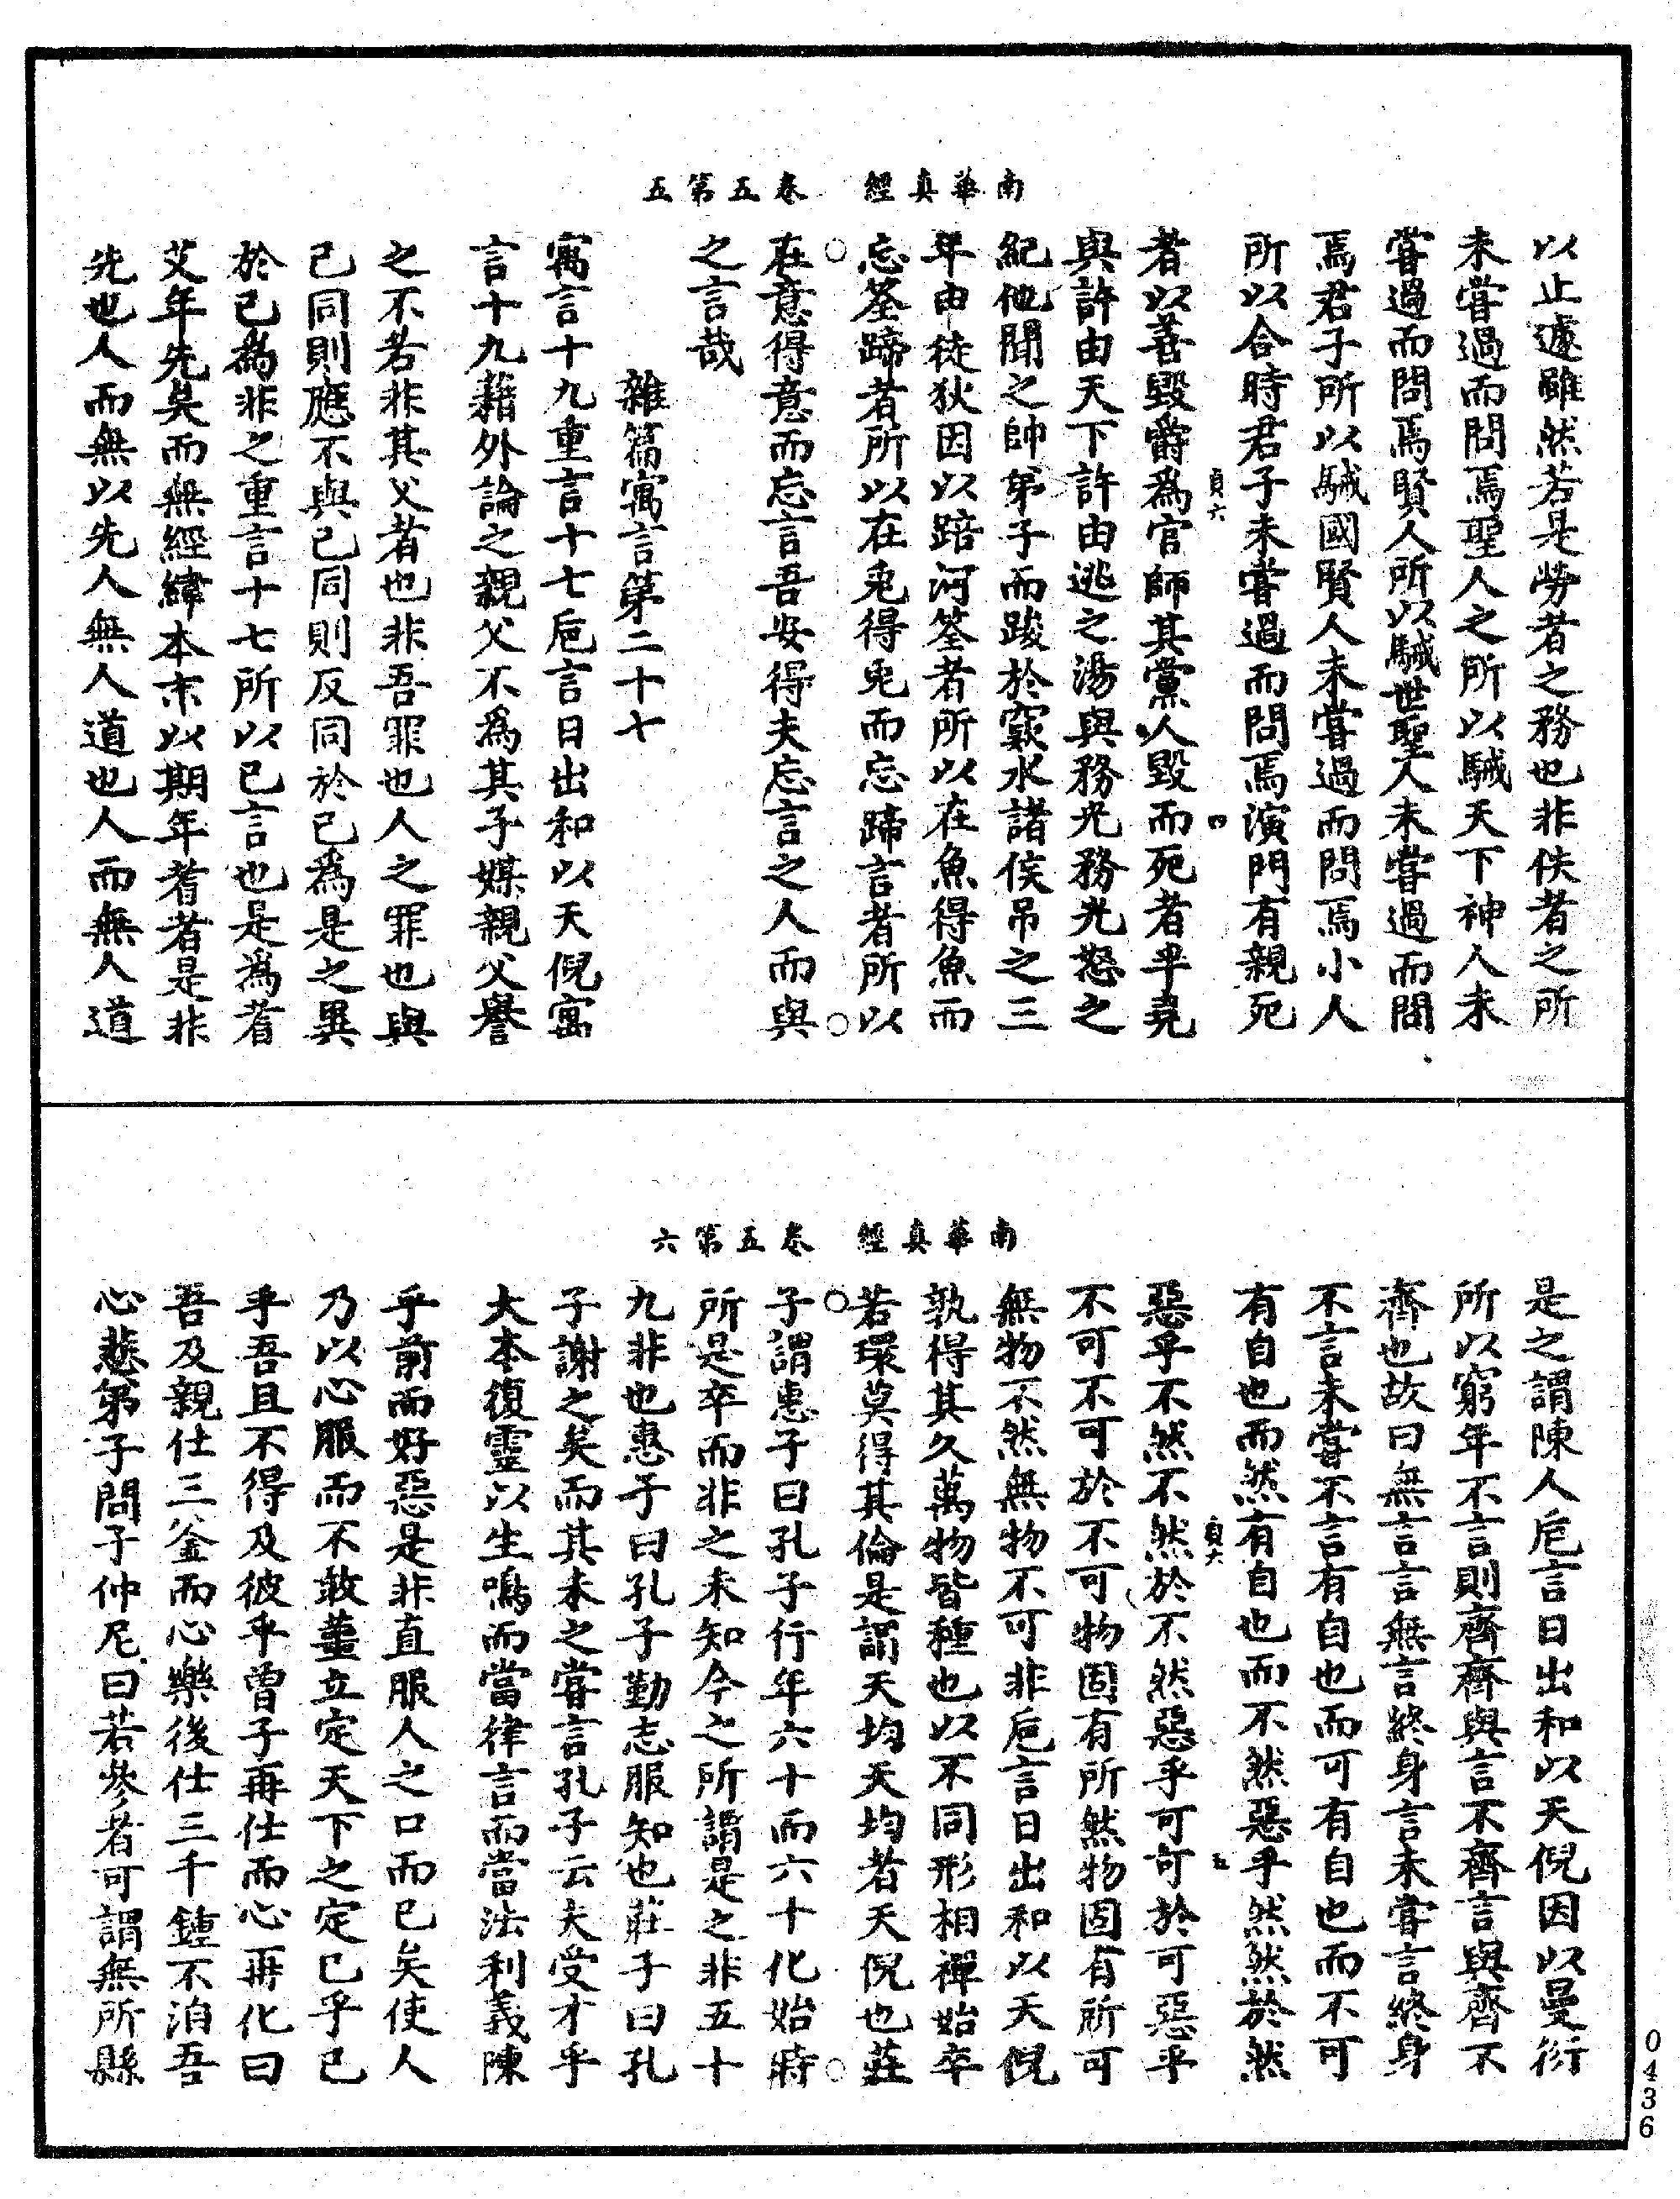 南華真經　卷五第五
以止遽雖然若是勞者之務也非佚者之所
未嘗過而問焉聖人之所以駴天下神人未
嘗過而問焉賢人所以駴世聖人未嘗過而問
焉君子所以駴國賢人未嘗過而問焉小人
所以合時君子未嘗過而問焉演門有親死
貞六　四
者以善毀爵爲官師其黨人毀而死者半堯
與許由天下許由逃之湯與務光務光怒之
紀他聞之帥弟子而踆於窾水諸侯吊之三
年申徒狄因以踣河筌者所以在魚得魚而
忘筌蹄者所以在兎得兎而忘蹄言者所以
在意得意而忘言吾安得夫忘言之人而與
之言哉
雜篇寓言第二十七
寓言十九重言十七巵言日出和以天倪寓
言十九藉外論之親父不爲其子媒親父譽
之不若非其父者也非吾罪也人之罪也與
己同則應不與己同則反同於己爲是之異
於己爲非之重言十七所以已言也是爲耆
艾年先矣而無經緯本末以期年耆者是非
先也人而無以先人無人道也人而無人道
南華真經　卷五第六
是之謂陳人巵言日出和以天倪因以曼衍
所以窮年不言則齊齊與言不齊言與齊不
齊也故曰無言言無言終身言未嘗言終身
不言未嘗不言有自也而可有自也而不可
有自也而然有自也而不然惡乎然然於然
貞六　五
惡乎不然不然於不然惡乎可可於可惡乎
不可不可於不可物固有所然物固有所可
無物不然無物不可非巵言日出和以天倪
孰得其久萬物皆種也以不同形相禪始卒
若環莫得其倫是謂天均天均者天倪也莊
子謂惠子曰孔子行年六十而六十化始時
所是卒而非之未知今之所謂是之非五十
九非也惠子曰孔子勤志服知也莊子曰孔
子謝之矣而其未之嘗言孔子云夫受才乎
大本復靈以生鳴而當律言而當法利義陳
乎前而好惡是非直服人之口而已矣使人
乃以心服而不敢蘁立定天下之定已乎已
乎吾且不得及彼乎曾子再仕而心再化曰
吾及親仕三釜而心樂後仕三千鍾不洎吾
心悲弟子問于仲尼曰若參者可謂無所縣
0436